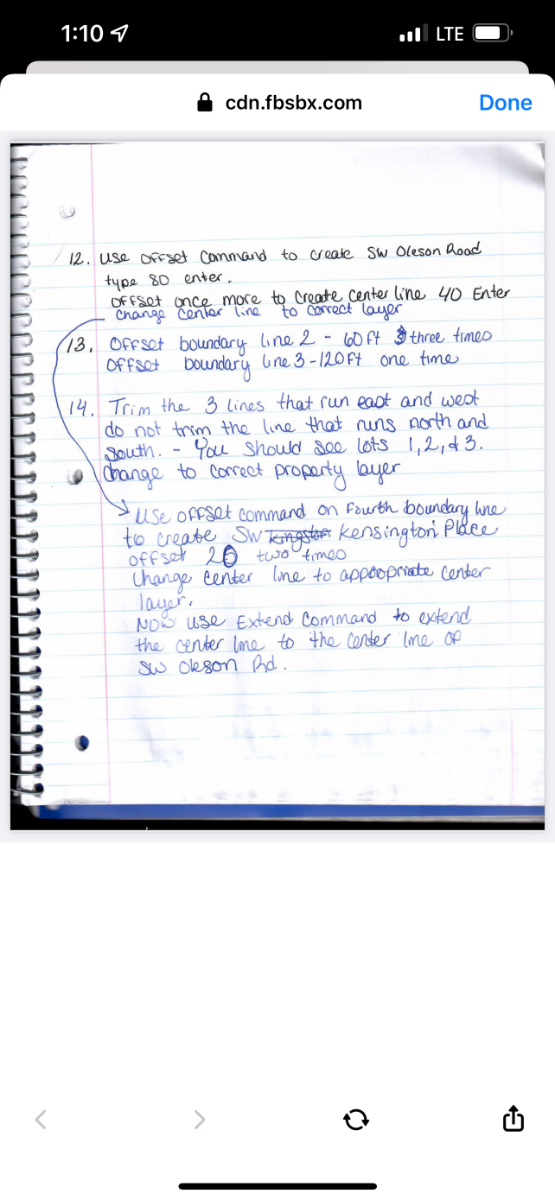 1:10
LTE
cdn.fbsbx.com
Done
12. Use OFFset Command to create SW Oleson Road
type 80 enter.
OFFset once more to create center line 40 Enter
Change Center line to correct layer
13. OFFset boundary line 2 - 60 ft three times
OFFset boundary line 3 - 120 ft one time
14. Trim the 3 lines that run east and west
do not trim the line that runs north and
south. - You should see lots 1, 2, & 3.
Change to correct property layer
Use OFFset command on Fourth boundary line
to create SW Kingston Kensington Place
offset 20 two times
Change center line to appoopriate center
layer.
NOW use Extend Command to extend
the center line to the center line of
SW Oleson Rd.